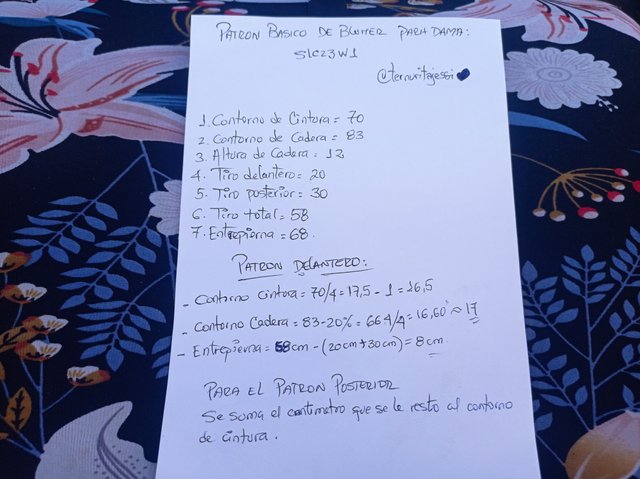 PATRON BASICO DE BLUMER PARA DAMA:
S1C23W1
@ternuritajessi
1. Contorno de Cintura = 70
2. Contorno de Cadera = 83
3. Altura de Cadera = 13
4. Tiro delantero = 20
5. Tiro posterior = 30
6. Tiro total = 58
7. Entrepierna = 68.
PATRON DELANTERO:
- Contorno cintura = 70/4 = 17,5 - 1 = 16,5
- Contorno Cadera = 83-20% = 66.4/4 = 16,60 ≈ 17
- Entrepierna = 58cm - (20cm+30cm) = 8cm.
PARA EL PATRON POSTERIOR
Se suma el centimetro que se le resto al contorno
de cintura.